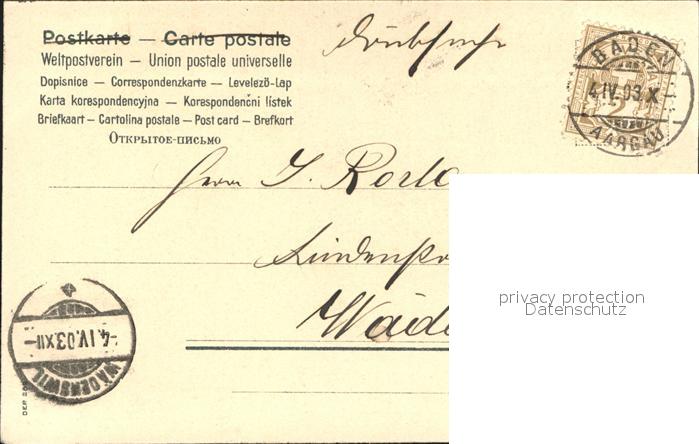 Postkarte — Carte postale
Weltpostverein — Union postale universelle
Dopisnice — Correspondenzkarte — Levelező-Lap
Karta korespondencyjna — Korespondenční lístek
Briefkaart — Cartolina postale — Post card — Brefkort
Открытое-письмо
Drucksache
BADEN
4.IV.03.X
AARGAU
2
Herrn J.
Wäde
privacy protection
Datenschutz
-4.IV.03.XII-
WÄDENSWIL